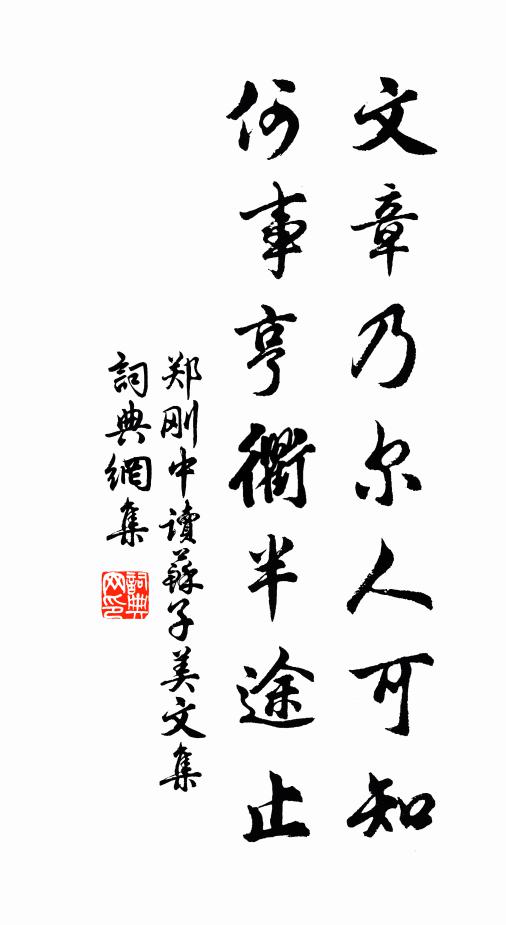 文章乃尔人可知
何事亨衢半途止
郑刚中读蘇子美文集
詞典網集
詞典网印